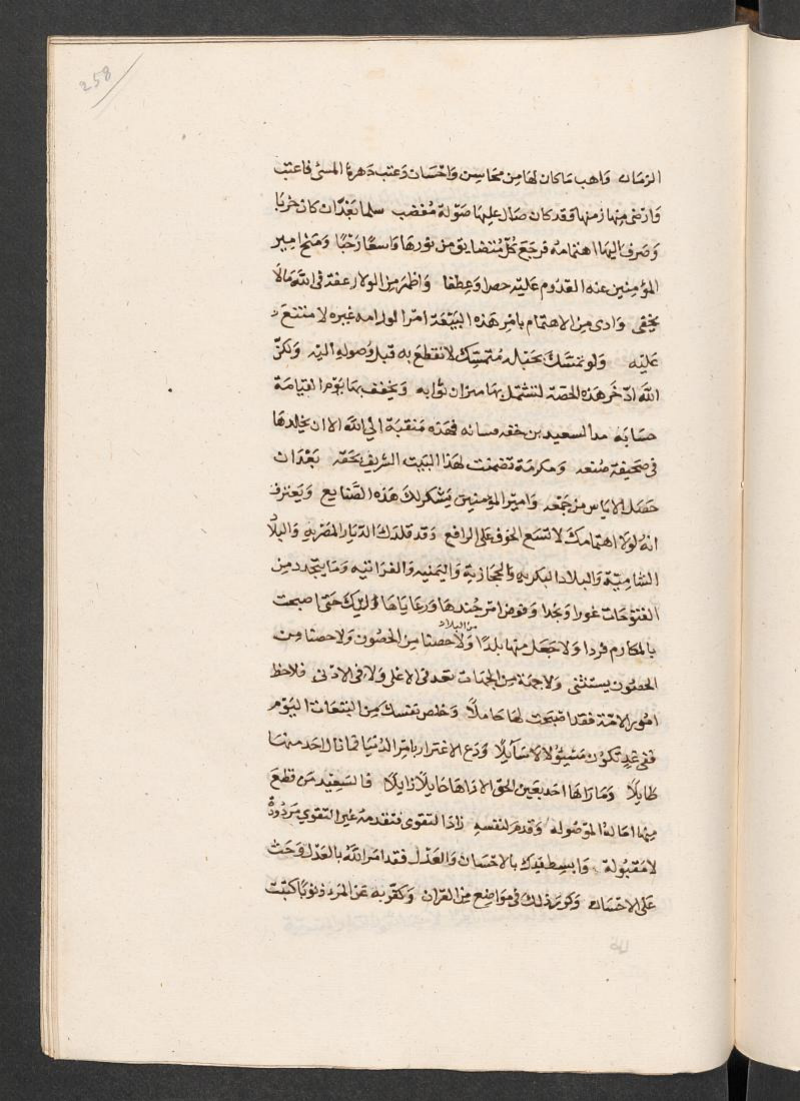 258
الزمان واهب ما كان لها من محاسن واحسان وعتب دهرها المسئ فاعتب
وارضى عنها زمنها وقد كان صال عليها صولة مغضب سلما بعد ان كان حربا
وصرف اليها اهتمامه فرجع كل متضايق من نورها واسعا رحبا ومنح امير
المؤمنين عند القدوم عليه حصرا وعطفا واظهر من الولا رعفة فى الله مالا
يخفى وادى من الاهتمام بامر هذه البيعة امرا لورامه غيره لامتنع
عليه ولو تمسك بحبله متمسك لانقطع به قبل وصوله اليه ولكن
الله ادخر هذه الحصة لتشتمل بها ميزان ثوابه ويخفف بها يوم القيامة
حسابه السعيد بن خفف حسابه فهذه منقبة ابى الله الا ان يخلدها
فى صحيفة صنعه ومكرمة تضمنت لهذا البيت الشريف بحقه بعد ان
حصل الاياس من جمعه وامير المؤمنين يشكر لك هذه الصنايع ويعترف
انه لولا اهتمامك لا تسع الخرق على الراقع وقد قلدك الديار المصريه والبلاد
الشامية والبلاد البكريه والحجازية واليمنيه والفراتيه وما يتجدد من
الفتوحات غورا ونجدا وفوض امر جندها ورعاياها اليك حتى اصبحت
بالمكارم فردا ولا جعل منها بلدا من البلاد ولا حصنا من الحصون ولا حصنا من
الحصون يستثنى ولا جهة من الجهات تعد فى الاعلى ولا فى الادنى فلاحظ
امور الامة فقد اصبحت لها حاملا وخلص نفسك من التبعات اليوم
ففى غد تكون مسئولا لا سايلا ودع الاغترار بامر الدنيا فما نال احد منها
طايلا وما راها احد بعين الحق الا راها حايلا زايلا فالسعيد من قطع
منها اماله الموصوله وقدم لنفسه زاد التقوى فتقدمة غير التقوى مردودة
لا مقبولة وابسط يدك بالاحسان والعدل فقد امر الله بالعدل وحث
على الاحسان وكرر ذلك فى مواضع من القران وكفر به عن المرء ذنوبا كتبت